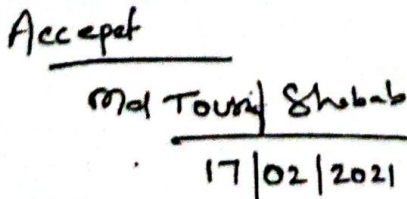 Accepet
Md Tousif Shabab
17/02/2021